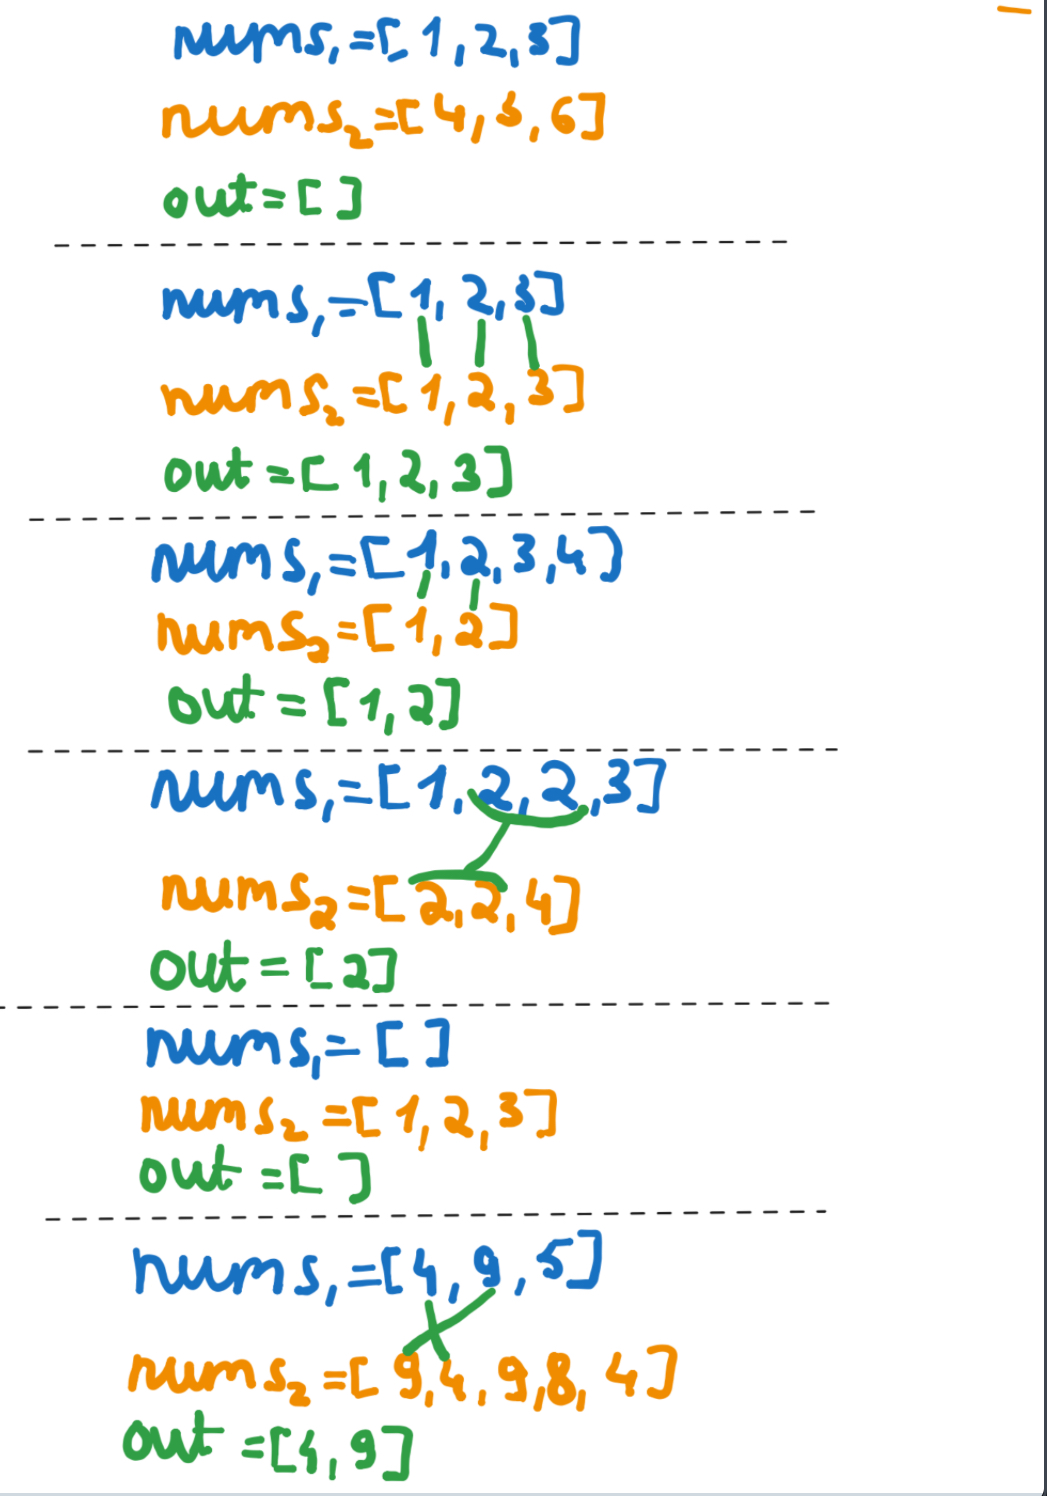 nums₁=[1,2,3]
nums₂=[4,5,6]
out=[]
nums₁=[1,2,3]
nums₂=[1,2,3]
out=[1,2,3]
nums₁=[1,2,3,4]
nums₂=[1,2]
out=[1,2]
nums₁=[1,2,2,3]
nums₂=[2,2,4]
out=[2]
nums₁=[]
nums₂=[1,2,3]
out=[]
nums₁=[4,9,5]
nums₂=[9,4,9,8,4]
out=[4,9]